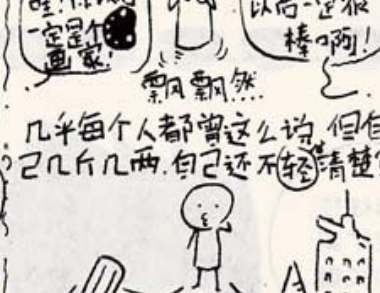 一定是个
画家!
以后一定很
棒啊!
飘飘然...
几乎每个人都曾这么说,但自
己几斤几两.自己还不轻清楚